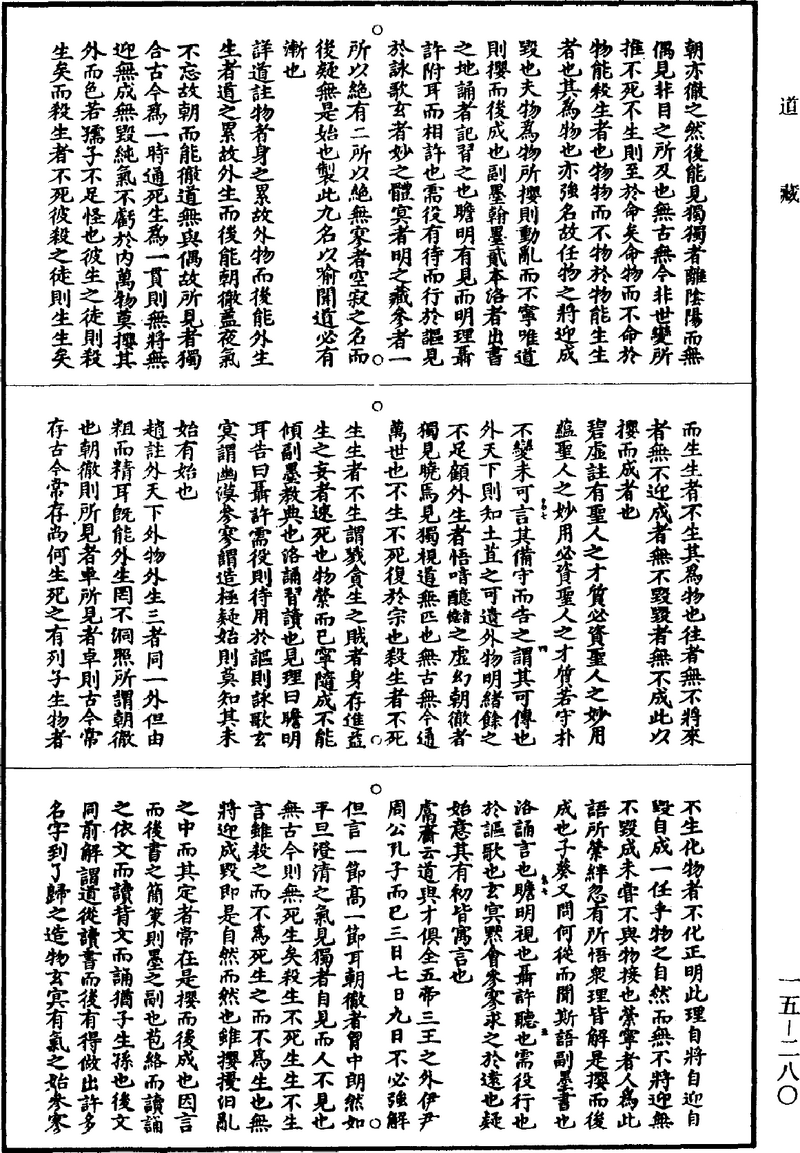 道藏
朝亦徹之然後能見獨獨者離陰陽而無
偶見非目之所及也無古無今非世變所
推不死不生則至於命矣命物而不命於
物能殺生者也物物而不物於物能生生
者也其為物也亦強名故任物之將迎成
毀也夫物為物所攖則動亂而不寧唯道
則攖而後成也副墨翰墨貳本洛者出書
之地誦者記習之也瞻明有見而明理聶
許附耳而相許也需役有待而行於謳見
於詠歌玄者妙之體冥者明之藏參者一
所以絕有二所以絕無寥者空寂之名而
後疑無是始也製此九名以喻聞道必有
漸也
詳道註物者身之累故外物而後能外生
生者道之累故外生而後能朝徹蓋夜氣
不忘故朝而能徹道無與偶故所見者獨
合古今為一時通死生為一貫則無將無
迎無成無毀純氣不虧於內萬物莫攖其
外而色若孺子不足怪也彼生之徒則殺
生矣而殺生者不死彼殺之徒則生生矣
而生生者不生其為物也往者無不將來
者無不迎成者無不毀毀者無不成此以
攖而成者也
碧虛註有聖人之才質必資聖人之妙用
蘊聖人之妙用必資聖人之才質若守朴
不變未可言其備守而告之謂其可傳也
外天下則知土苴之可遺外物明緒餘之
不足顧外生者悟喑醷之虛幻朝徹者
獨見曉焉見獨視道無匹也無古無今通
萬世也不生不死復於宗也殺生者不死
生生者不生謂戮貪生之賊者身存進益
生之妄者速死也物縈而已寧隨成不能
傾副墨教典也洛誦習讀也見理曰瞻明
耳告曰聶許需役則待用於謳則詠歌玄
冥謂幽漠參寥謂造極疑始則莫知其未
始有始也
趙註外天下外物外生三者同一外但由
粗而精耳既能外生罔不洞照所謂朝徹
也朝徹則所見者卓所見者卓則古今常
存古今常存尚何生死之有列子生物者
不生化物者不化正明此理自將自迎自
毀自成一任乎物之自然而無不將迎無
不毀成未嘗不與物接也縈寧者人為此
語所縈絆忽有所悟衆理皆解是攖而後
成也子葵又問何從而聞斯語副墨書也
洛誦言也瞻明視也聶許聽也需役行也
於謳歌也玄冥黙會參寥求之於遠也疑
始意其有初皆寓言也
鬳齋云道與才俱全五帝三王之外伊尹
周公孔子而已三日七日九日不必強解
但言一節高一節耳朝徹者胷中朗然如
平旦澄清之氣見獨者自見而人不見也
無古今則無死生矣殺生不死生生不生
言雖殺之而不為死生之而不為生也無
將迎成毀即是自然而然也雖攖擾汨亂
之中而其定者常在是攖而後成也因言
而後書之簡策則墨之副也苞絡而讀誦
之依文而讀背文而誦猶子生孫也後文
同前解謂道從讀書而後有得做出許多
名字到了歸之造物玄冥有氣之始參寥
一五－二八〇